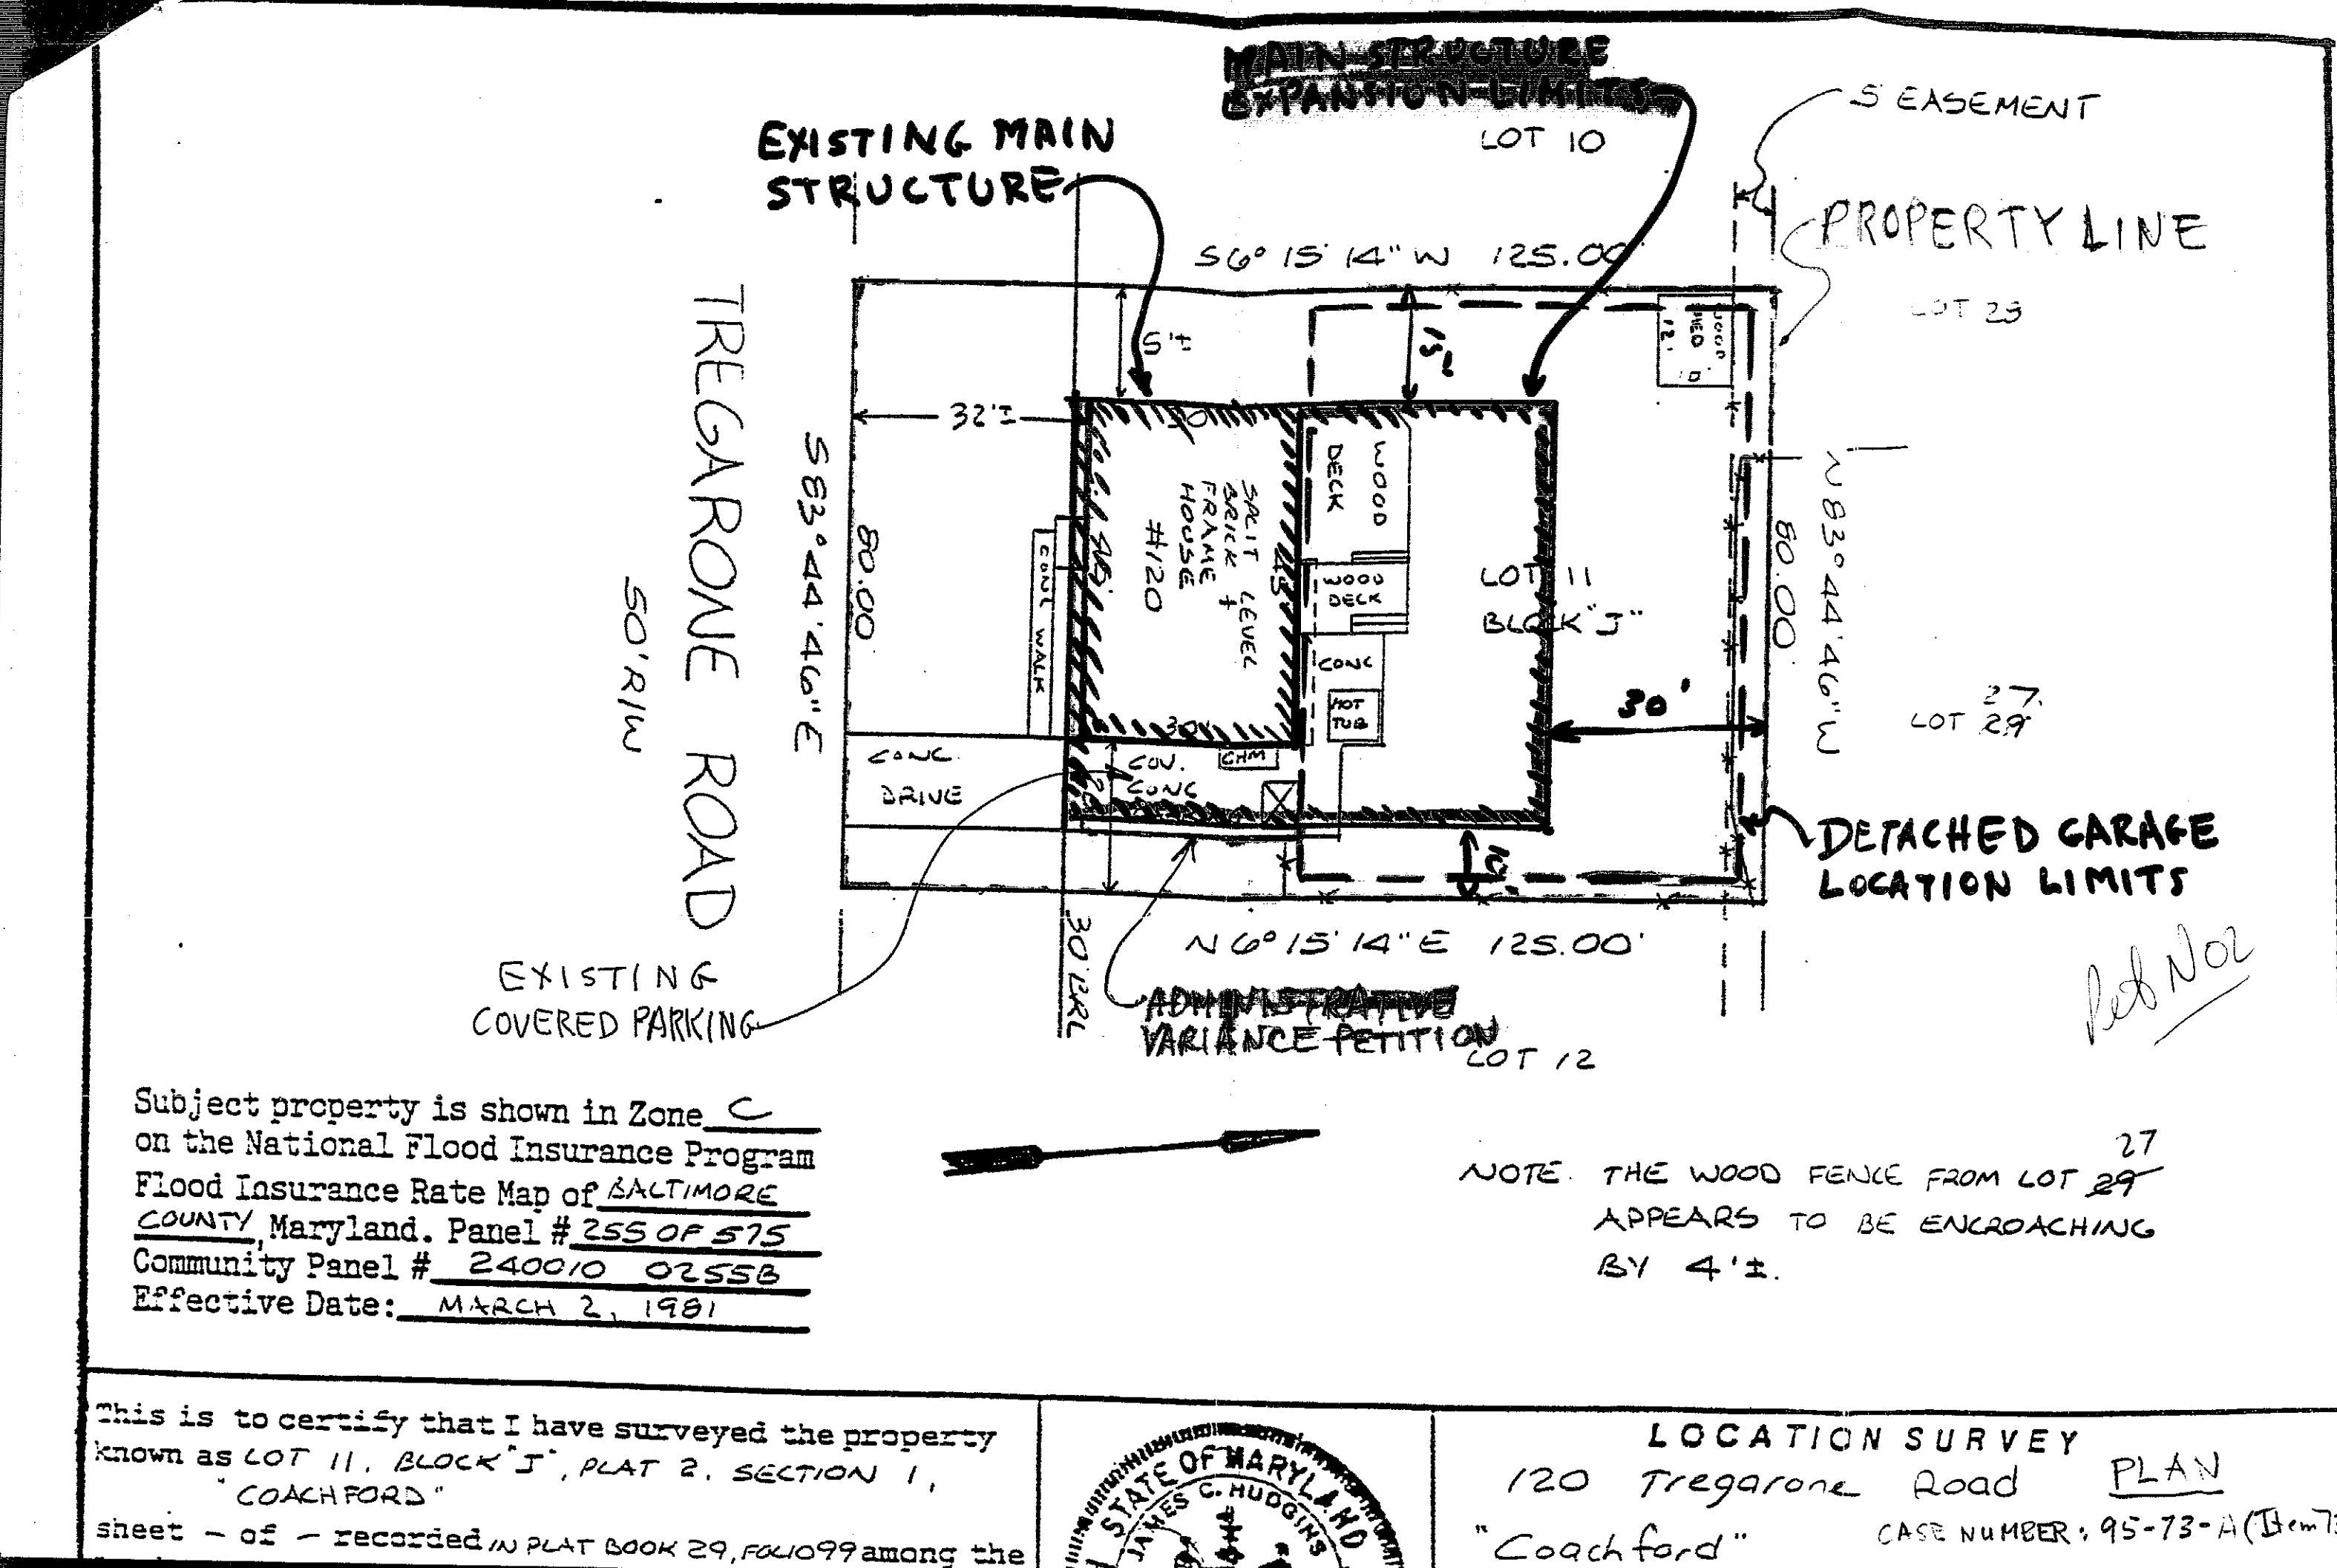 MAIN STRUCTURE
EXPANSION LIMITS
LOT 10
5' EASEMENT
EXISTING MAIN
STRUCTURE
PROPERTY LINE
S6° 15' 14" W 125.00'
LOT 23
TREGARONE ROAD
50' R/W
S 83° 44' 46" E
80.00
32'±
5'±
15'
WOOD
SHED
12'
10'
SPLIT LEVEL
BRICK +
FRAME
HOUSE
#120
45
30
WOOD
DECK
WOOD
DECK
CONC
HOT
TUB
CONC WALK
LOT 11
BLOCK "J"
N 83° 44' 46" W
80.00
30'
27
LOT 29
CONC.
DRIVE
COV.
CONC
CHM
10'
DETACHED GARAGE
LOCATION LIMITS
N 6° 15' 14" E 125.00'
30' BRL
EXISTING
COVERED PARKING
ADMINISTRATIVE
VARIANCE PETITION
LOT 12
Subject property is shown in Zone C
on the National Flood Insurance Program
Flood Insurance Rate Map of BALTIMORE
COUNTY, Maryland. Panel # 255 OF 575
Community Panel # 240010 0255B
Effective Date: MARCH 2, 1981
27
NOTE. THE WOOD FENCE FROM LOT 29
APPEARS TO BE ENCROACHING
BY 4'±.
This is to certify that I have surveyed the property
known as LOT 11, BLOCK "J", PLAT 2, SECTION 1,
"COACHFORD"
sheet - of - recorded IN PLAT BOOK 29, FOLIO 99 among the
STATE OF MARYLAND
JAMES C. HUDGINS
LOCATION SURVEY
120 Tregarone Road PLAN
"Coachford" CASE NUMBER: 95-73-A (Item 73